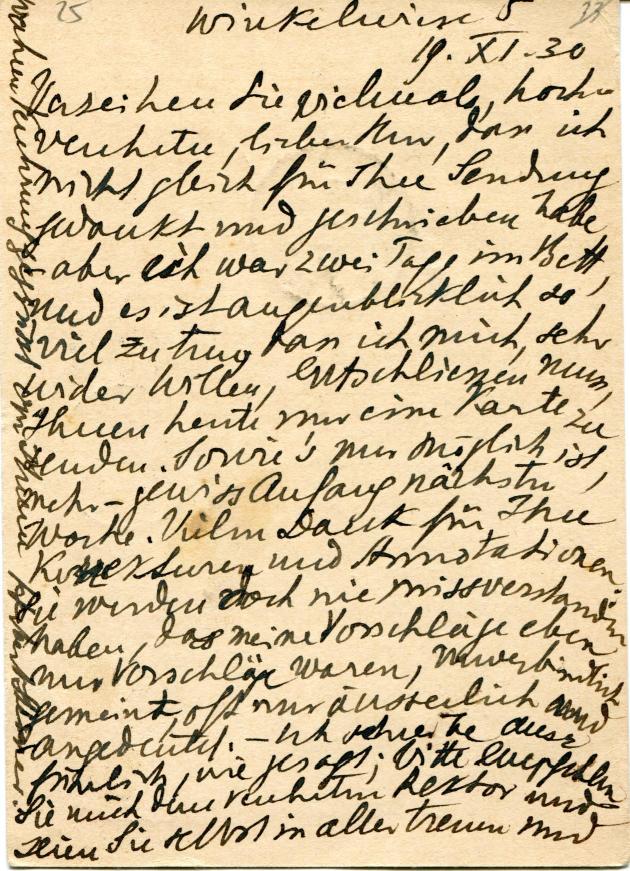 25
Winkelwiese 5
19. XI. 30
Verzeihen Sie vielmals, hoch-
verehrter, lieber Herr, dass ich
nicht gleich für Ihre Sendung
gedankt und geschrieben habe
– aber ich war zwei Tage im Bett,
und es ist augenblicklich so
viel zu tun, dass ich mich, sehr
wider Willen, entschliessen muss,
Ihnen heute nur eine Karte zu
senden. Sowie's nur möglich ist,
mehr – gewiss Anfang nächster
Woche. Vielen Dank für Ihre
Korrekturen und Annotationen.
Sie werden doch nie missverstanden
haben, dass meine Vorschläge eben
nur Vorschläge waren, unverbindlich
gemeint, oft nur äusserlich und
angedeutet. – Ich schreibe ausführlich,
wie gesagt; bitte empfehlen
Sie mich dem verehrten Rektor und
seien Sie selbst in aller treuen und
wahren Verehrung gegrüsst von Ihrem